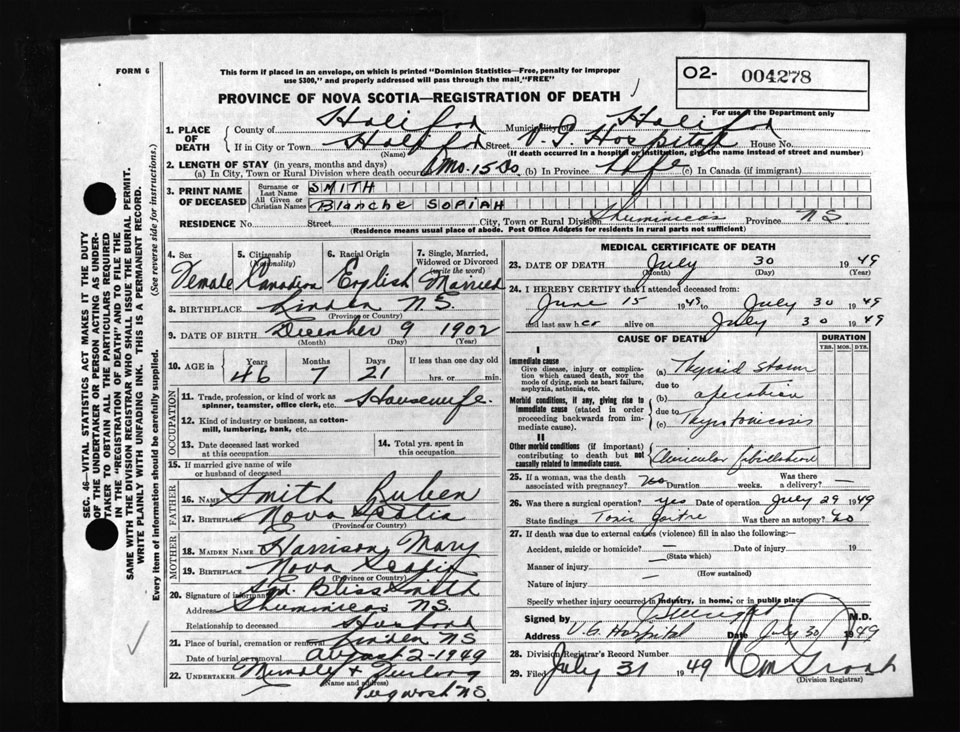 FORM 6
This form if placed in an envelope, on which is printed "Dominion Statistics—Free, penalty for improper
use $300," and properly addressed will pass through the mail "FREE"
02- 004278
For use of the Department only
PROVINCE OF NOVA SCOTIA—REGISTRATION OF DEATH
1. PLACE OF DEATH { County of Halifax Municipality of Halifax
If in City or Town Halifax Street V.G. Hospital House No.
(Name) (If death occurred in a hospital or institution, give the name instead of street and number)
2. LENGTH OF STAY (in years, months and days)
(a) In City, Town or Rural Division where death occurred Mo. 15 Ds (b) In Province Life (c) In Canada (if immigrant)
3. PRINT NAME OF DECEASED { Surname or Last Name SMITH
All Given or Christian Names Blanche SOPIAH
RESIDENCE No. Street City, Town or Rural Division Shuminicas Province NS
(Residence means usual place of abode. Post Office Address for residents in rural parts not sufficient)
4. Sex 5. Citizenship (Nationality) 6. Racial Origin 7. Single, Married, Widowed or Divorced (write the word)
Female Canadian English Married
8. BIRTHPLACE Linden N.S.
(Province or Country)
9. DATE OF BIRTH December 9 1902
(Month) (Day) (Year)
10. AGE in { Years Months Days If less than one day old
46 7 21 hrs. or min.
OCCUPATION
11. Trade, profession, or kind of work as spinner, teamster, office clerk, etc. Housewife.
12. Kind of industry or business, as cotton-mill, lumbering, bank, etc.
13. Date deceased last worked at this occupation 14. Total yrs. spent in this occupation
15. If married give name of wife or husband of deceased
FATHER
16. NAME Smith Ruben
17. BIRTHPLACE Nova Scotia
(Province or Country)
MOTHER
18. MAIDEN NAME Harrison, Mary
19. BIRTHPLACE Nova Scotia
(Province or Country)
20. Signature of informant Sgd. Bliss Smith
Address Shuminicas N.S.
Relationship to deceased Husband
21. Place of burial, cremation or removal Linden NS
Date of burial or removal August 2-1949
22. UNDERTAKER Mundly & Furlong
(Name and Address) Pugwash N.S.
MEDICAL CERTIFICATE OF DEATH
23. DATE OF DEATH July 30 1949
(Month) (Day) (Year)
24. I HEREBY CERTIFY that I attended deceased from:
June 15 1949 to July 30 1949
and last saw her alive on July 30 1949
CAUSE OF DEATH DURATION
YRS. MOS. DYS.
I
Immediate cause
Give disease, injury or complication which caused death, NOT the mode of dying, such as heart failure, asphyxia, asthenia, etc.
(a) Thyroid Storm
due to
Morbid conditions, if any, giving rise to immediate cause (stated in order proceeding backwards from immediate cause).
(b) operation
due to
(c) Thyrotoxicosis
II
Other morbid conditions (if important) contributing to death but not causally related to immediate cause.
Auricular fibrillation
25. If a woman, was the death associated with pregnancy? No Duration weeks. Was there a delivery? —
26. Was there a surgical operation? yes Date of operation July 29 1949
State findings Toxic Goitre Was there an autopsy? no
27. If death was due to external causes (violence) fill in also the following:
Accident, suicide or homicide? — Date of injury 19
(State which)
Manner of injury —
(How sustained)
Nature of injury —
Specify whether injury occurred in industry, in home, or in public place
Signed by M.D.
Address V.G. Hospital Date July 30 1949
28. Division Registrar's Record Number
29. Filed July 31 1949
(Division Registrar)
SEC. 46—VITAL STATISTICS ACT MAKES IT THE DUTY
OF THE UNDERTAKER OR PERSON ACTING AS UNDER-
TAKER TO OBTAIN ALL THE PARTICULARS REQUIRED
IN THE "REGISTRATION OF DEATH" AND TO FILE THE
SAME WITH THE DIVISION REGISTRAR WHO SHALL ISSUE THE BURIAL PERMIT.
WRITE PLAINLY WITH UNFADING INK. THIS IS A PERMANENT RECORD.
Every item of information should be carefully supplied. (See reverse side for instructions.)